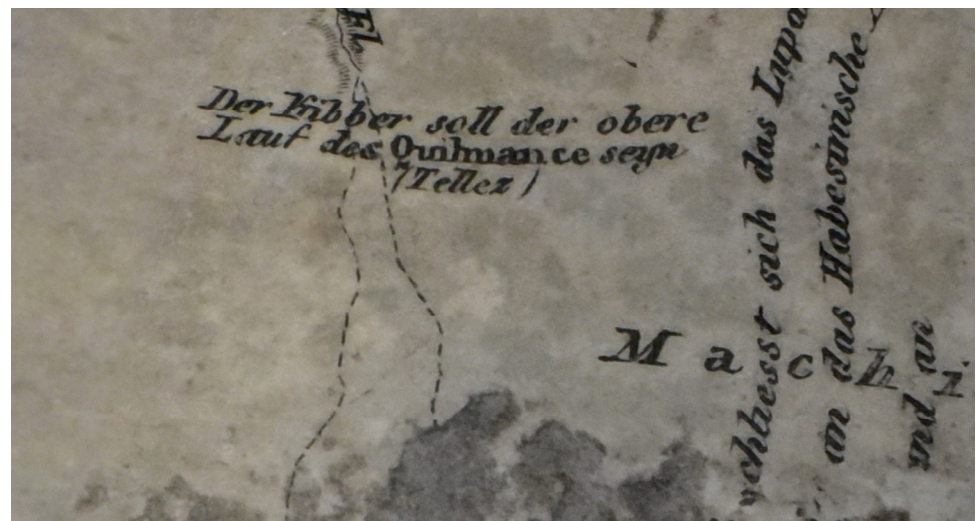 Fl.
Der Kibber soll der obere
Lauf des Quilmance seyn
(Tellez)
schliesst sich das Lupa
an das Habesinische
und an
Machi